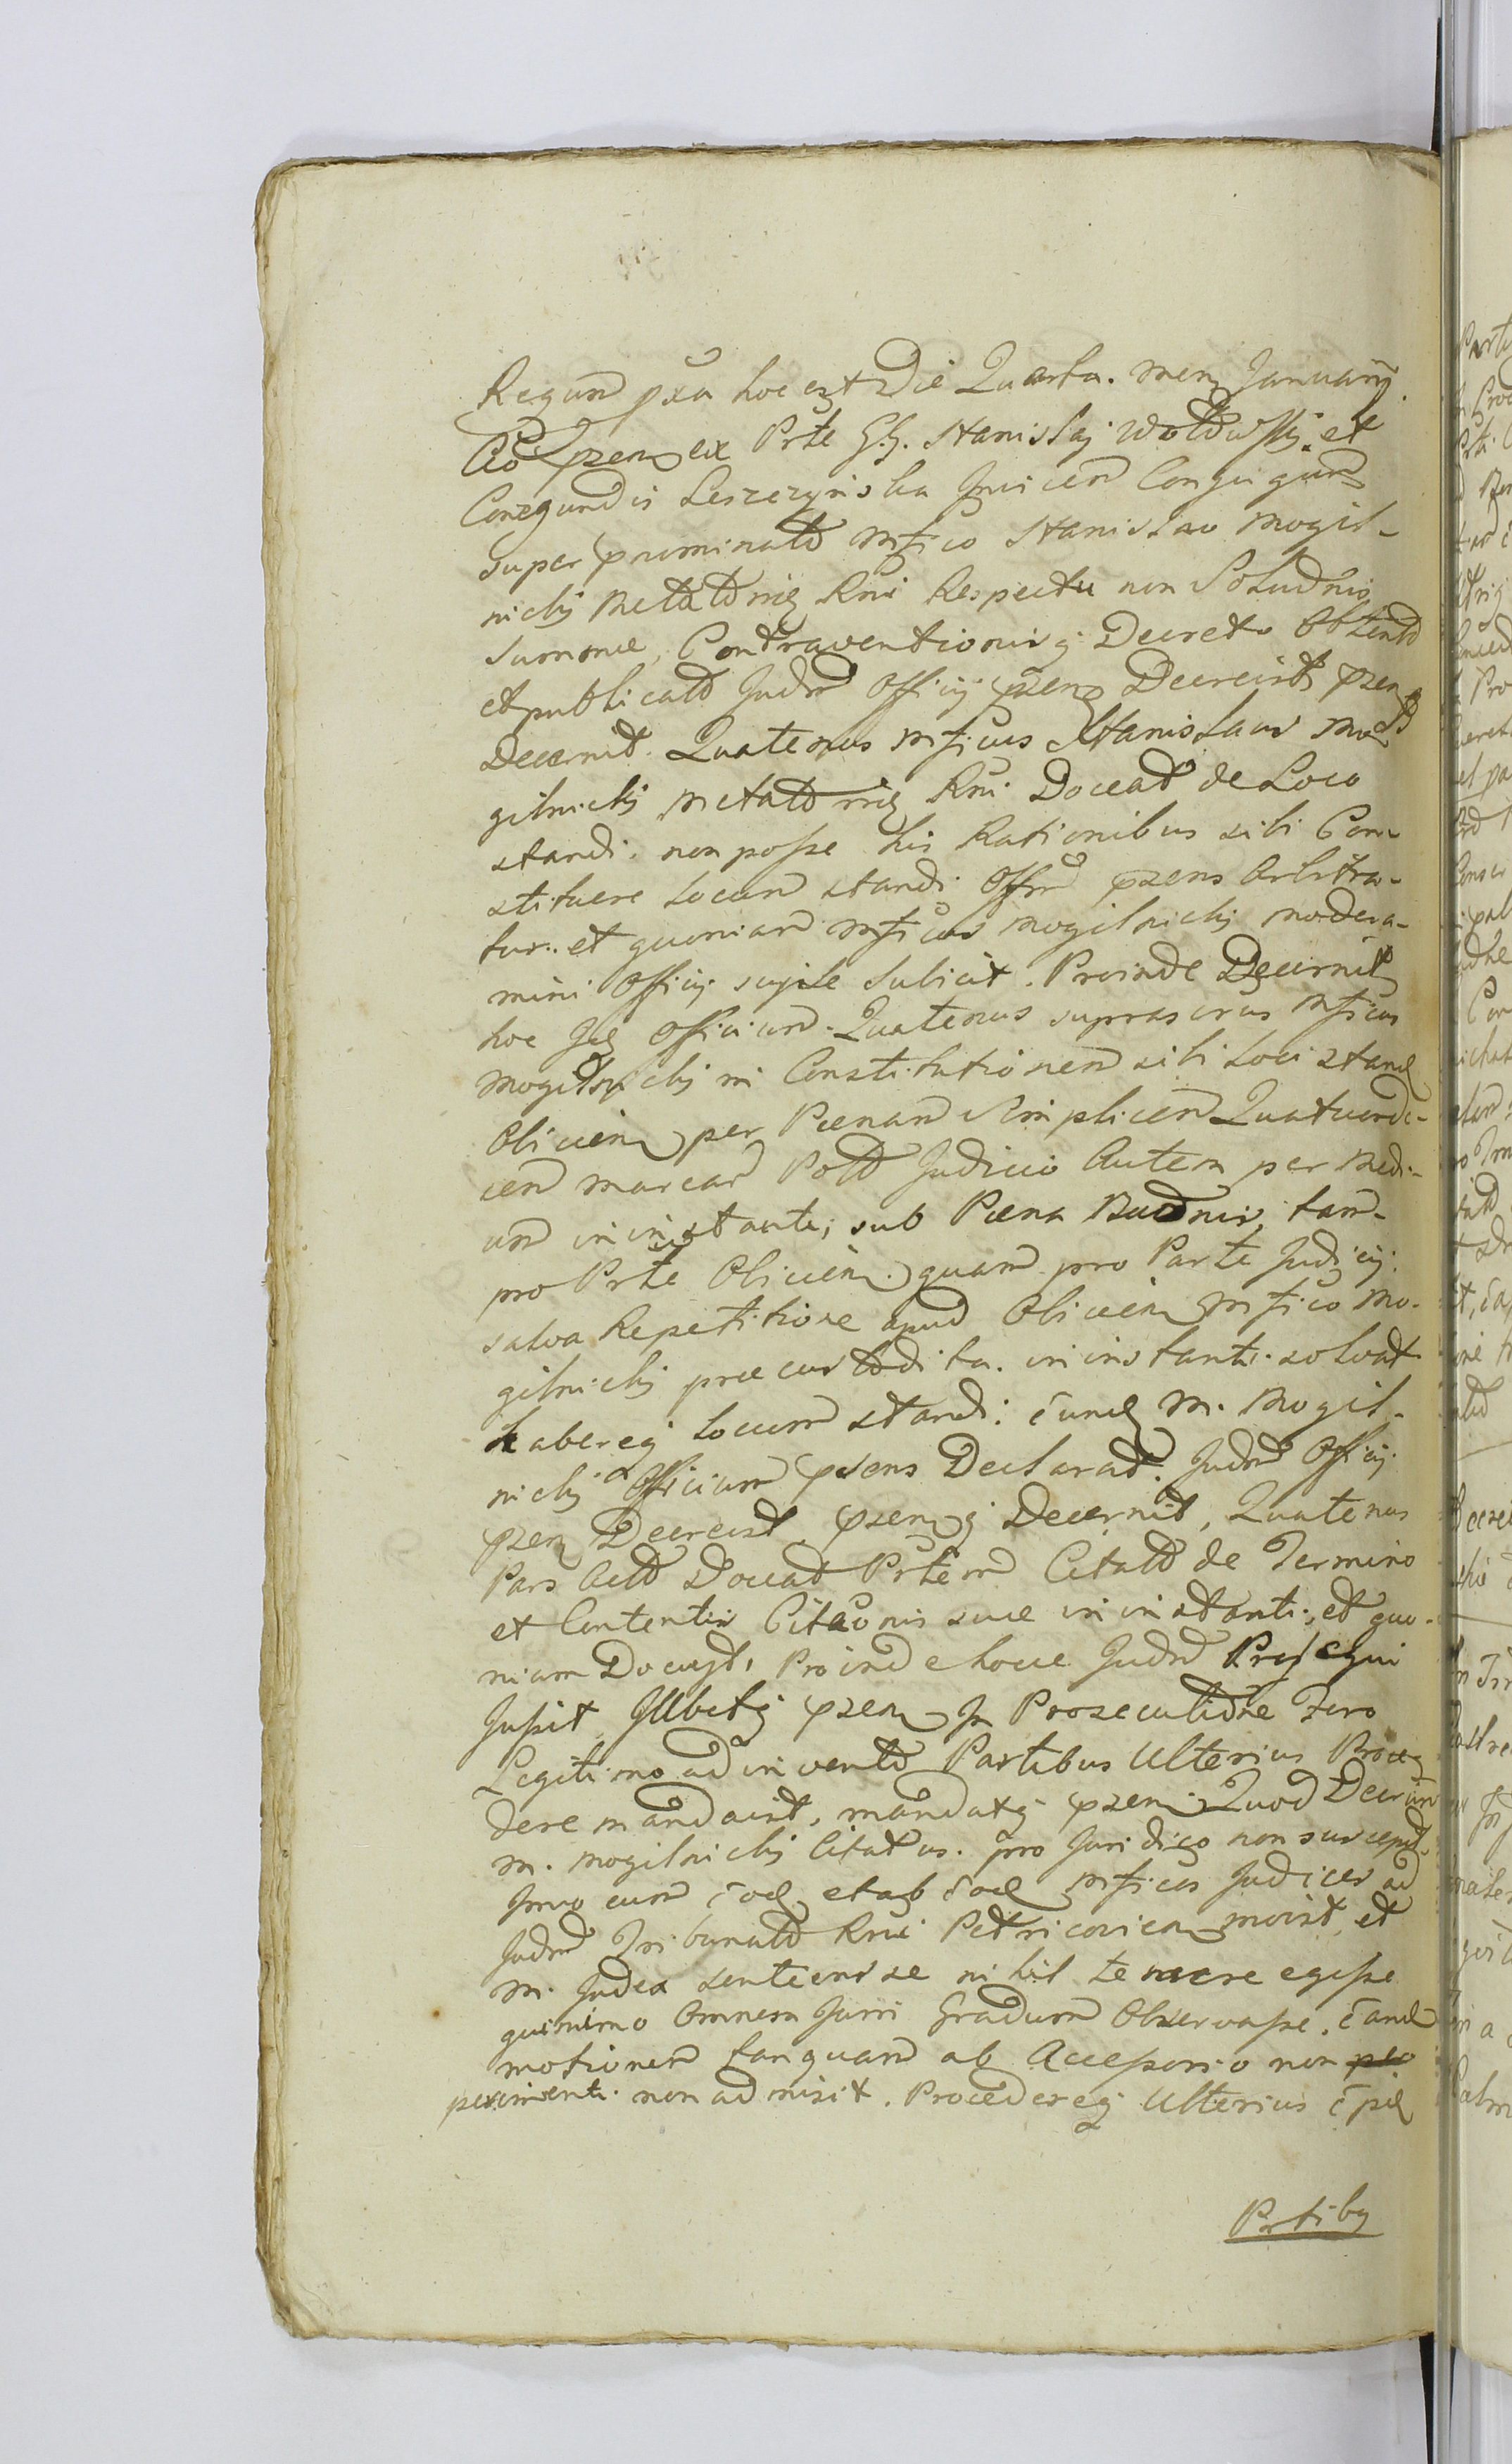 Regum pxa hoc est Die Quarta. mens Januarij
Cio pzens ex Prte GG. Stanislaj et
Conegundis Leszczynska Invicem Conjugum
super pnominatd Mfico Stanislao Mogil-
nickj Metatd Rni Respectu non Soludnis
Summae, Contraventionisq Decreto Obtentd
et publicatd Judm Officij pzens Decreist pzens
Decernit. Quatenus Mficus Stanislaus Mo
gilnickj Metatd Rni Doceat de Loco
standi. non posse his Rationibus sibi Con-
stituere Locum standi Offm pzens Arbitra-
tur. et quoniam Mficus Mogilnickj modera-
mini Officij se Subicit. Proinde Decernit
hoc Officium. Quatenus suprascrus Mficus
Mogilnickj in Constitutionem sibi Loci stand
Obicien per Poenam Simplicem Quatuorde-
cem marcar Poltd Judicio Autem per Medi-
um in instanti, sub Poena Bandnis, tam
pro Prte Obicien. quam pro Parte Judicij.
salva Repetitione apud Obicien Mfico Mo-
gilnickj praecustodita. in instanti. solvat
habereq Locum standi. eund M. Mogil-
nickj Officium pzens Declarat. Judm Officij
pzens Decreist, pzensq Decernit, Quatenus
Pars Actd Doceat Prtem Citatd de Termino
et Contentis Citaonis suae in instanti, et quo-
niam Docuyt, Proinde hocce Judm Prosequi
Jusit Illbetq pzens In Prosecutione Fero
Legitimo adinventd Partibus Ulterius Proce-
dere mandaist, mandatq pzens. Quod Decrum
M. Mogilnickj Citatus. pro Juridico non suscepit
Imo eum eod et ab eod Mficos Judices ad
Judm Tribunatd Rni Petricovien movist, et
M. Judex sentiens se nihil temere egisse
quinimo Omnem Juris Gradum Observasse. eand
motionem tanquam ab Accessorio non
perimenti. non admisit. Procedereq Ulterius
Prtiby